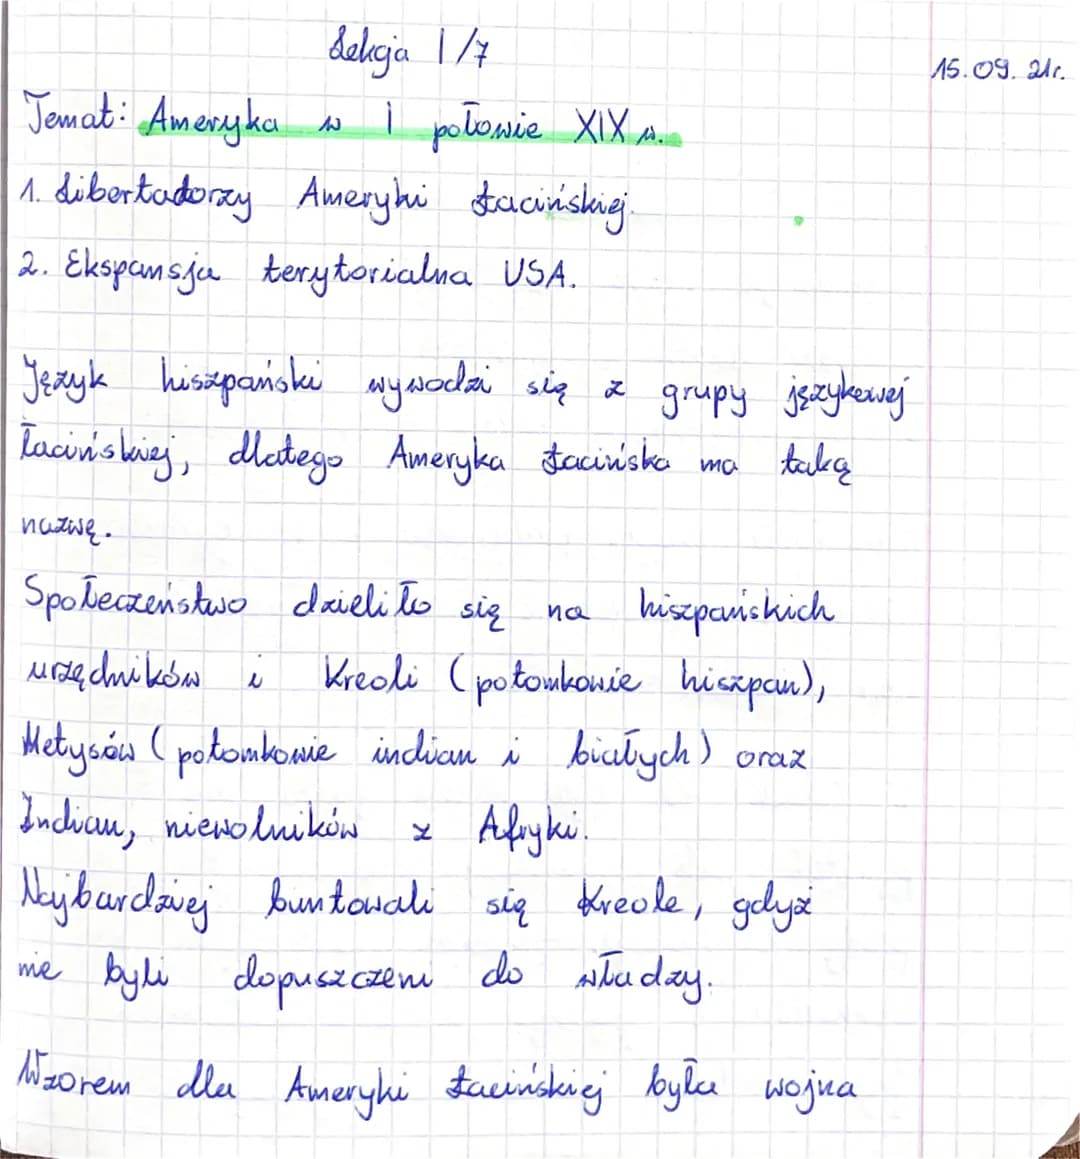 Lekcja 1/7
15.09.21r.
Temat: Ameryka w I połowie XIX w.
1. Libertadorzy Ameryki Łacińskiej.
2. Ekspansja terytorialna USA.
Język hiszpański wywodzi się z grupy językowej
łacińskiej, dlatego Ameryka Łacińska ma taką
nazwę.
Społeczeństwo dzieliło się na hiszpańskich
urzędników i Kreoli (potomkowie hiszpan),
Metysów (potomkowie indian i białych) oraz
Indian, niewolników z Afryki.
Najbardziej buntowali się Kreole, gdyż
nie byli dopuszczeni do władzy.
Wzorem dla Ameryki Łacińskiej była wojna